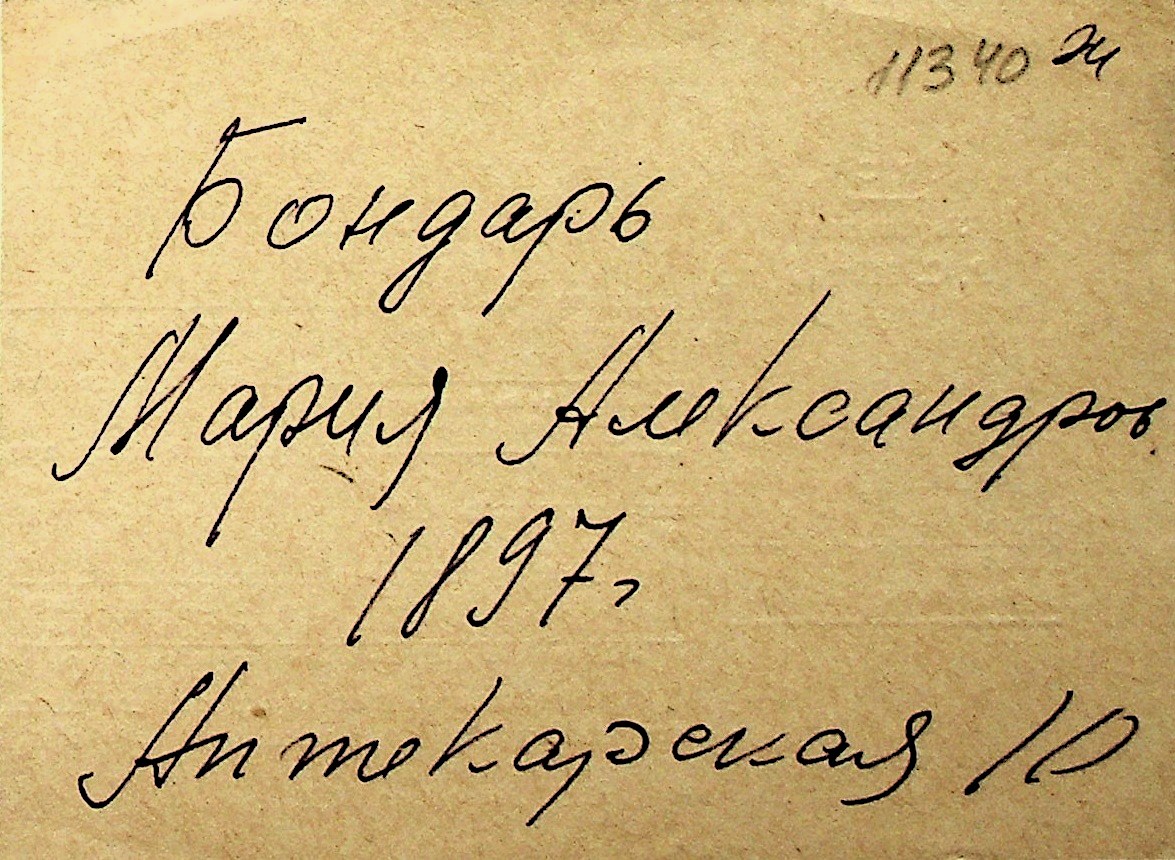 11340 Ж
Бондарь
Мария Александров.
1897г
Аптекарская 10